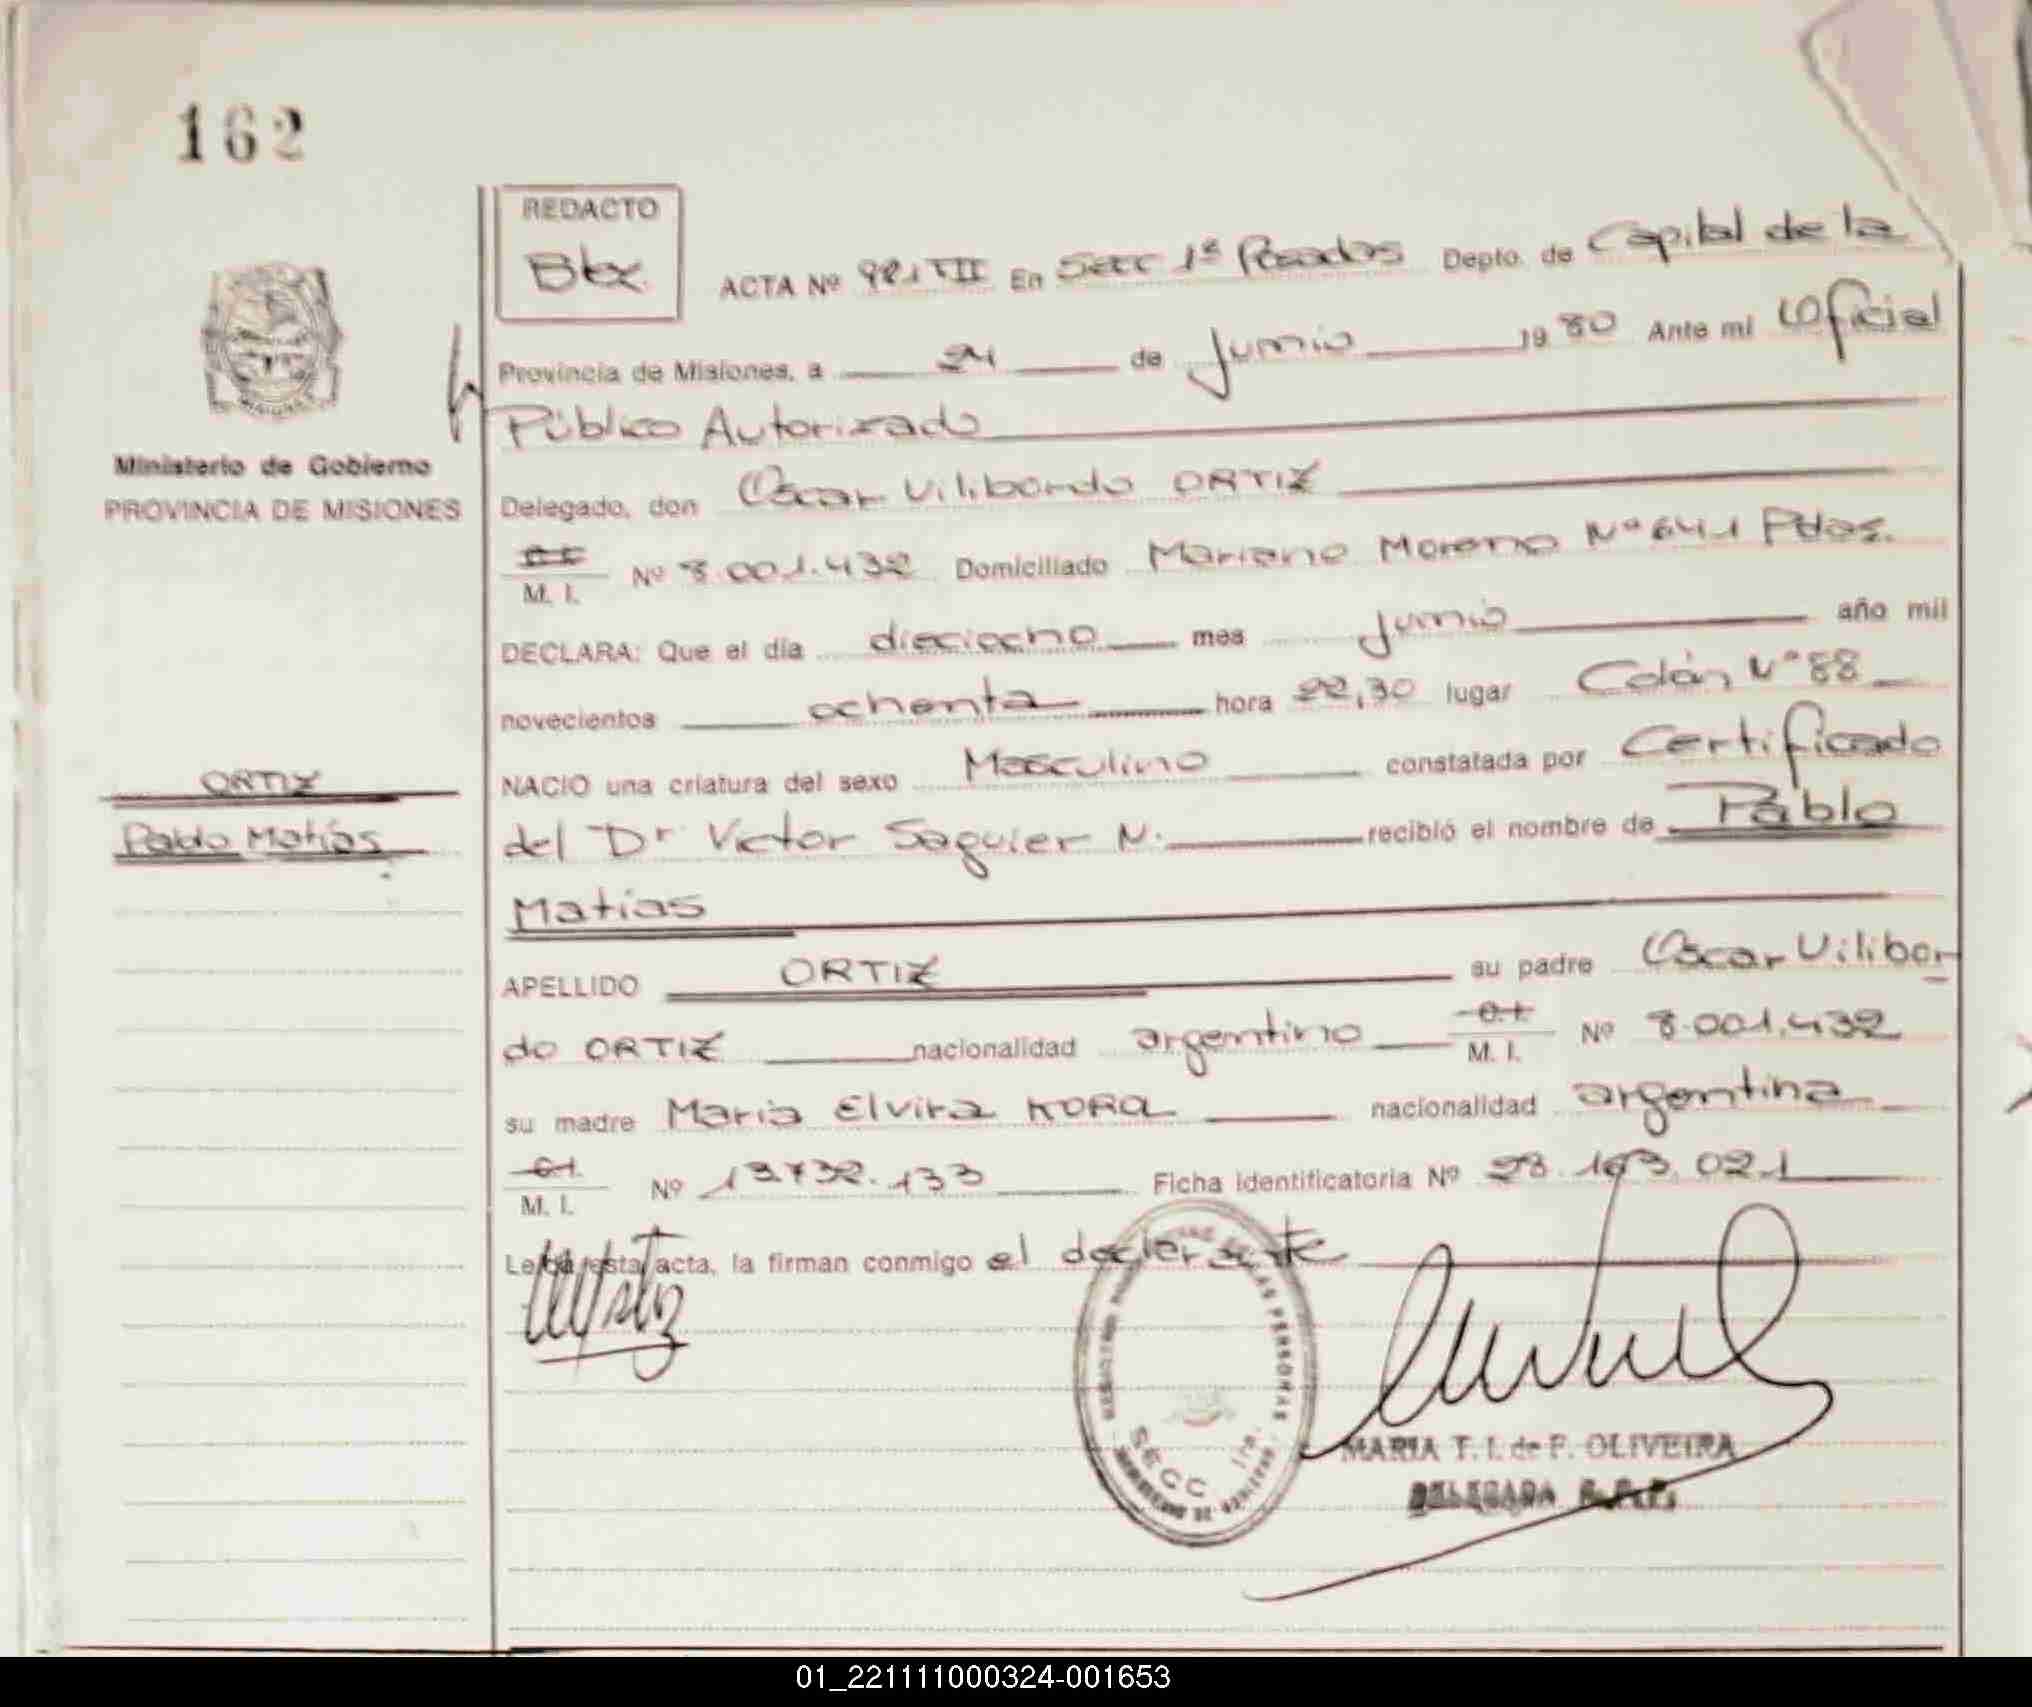 162
REDACTO
ACTA Nº 921 VII En Secc 1ª Posadas Depto. de Capital de la
Provincia de Misiones, a 24 de Junio 1980 Ante mi Oficial
Público Autorizado
Ministerio de Gobierno
PROVINCIA DE MISIONES
Delegado, don Oscar Vilibordo ORTIZ
M. I. Nº 8.001.432 Domiciliado Mariano Moreno Nº 641 Pdas.
DECLARA: Que el día dieciocho mes Junio año mil
novecientos ochenta hora 22,30 lugar Colón Nº 88
NACIO una criatura del sexo Masculino constatada por Certificado
ORTIZ
Pablo Matías
del Dr Victor Saguier N. recibió el nombre de Pablo
Matías
APELLIDO ORTIZ su padre Oscar Vilibor
do ORTIZ nacionalidad argentino C.I. M. I. Nº 8.001.432
su madre Maria Elvira nacionalidad argentina
C.I. M. I. Nº 13.732.133 Ficha identificatoria Nº 28.193.021
Leída esta acta, la firman conmigo el declarante
PERSONAS
SECC 1ra.
MARIA T. I. de F. OLIVEIRA
DELEGADA
01_221111000324-001653